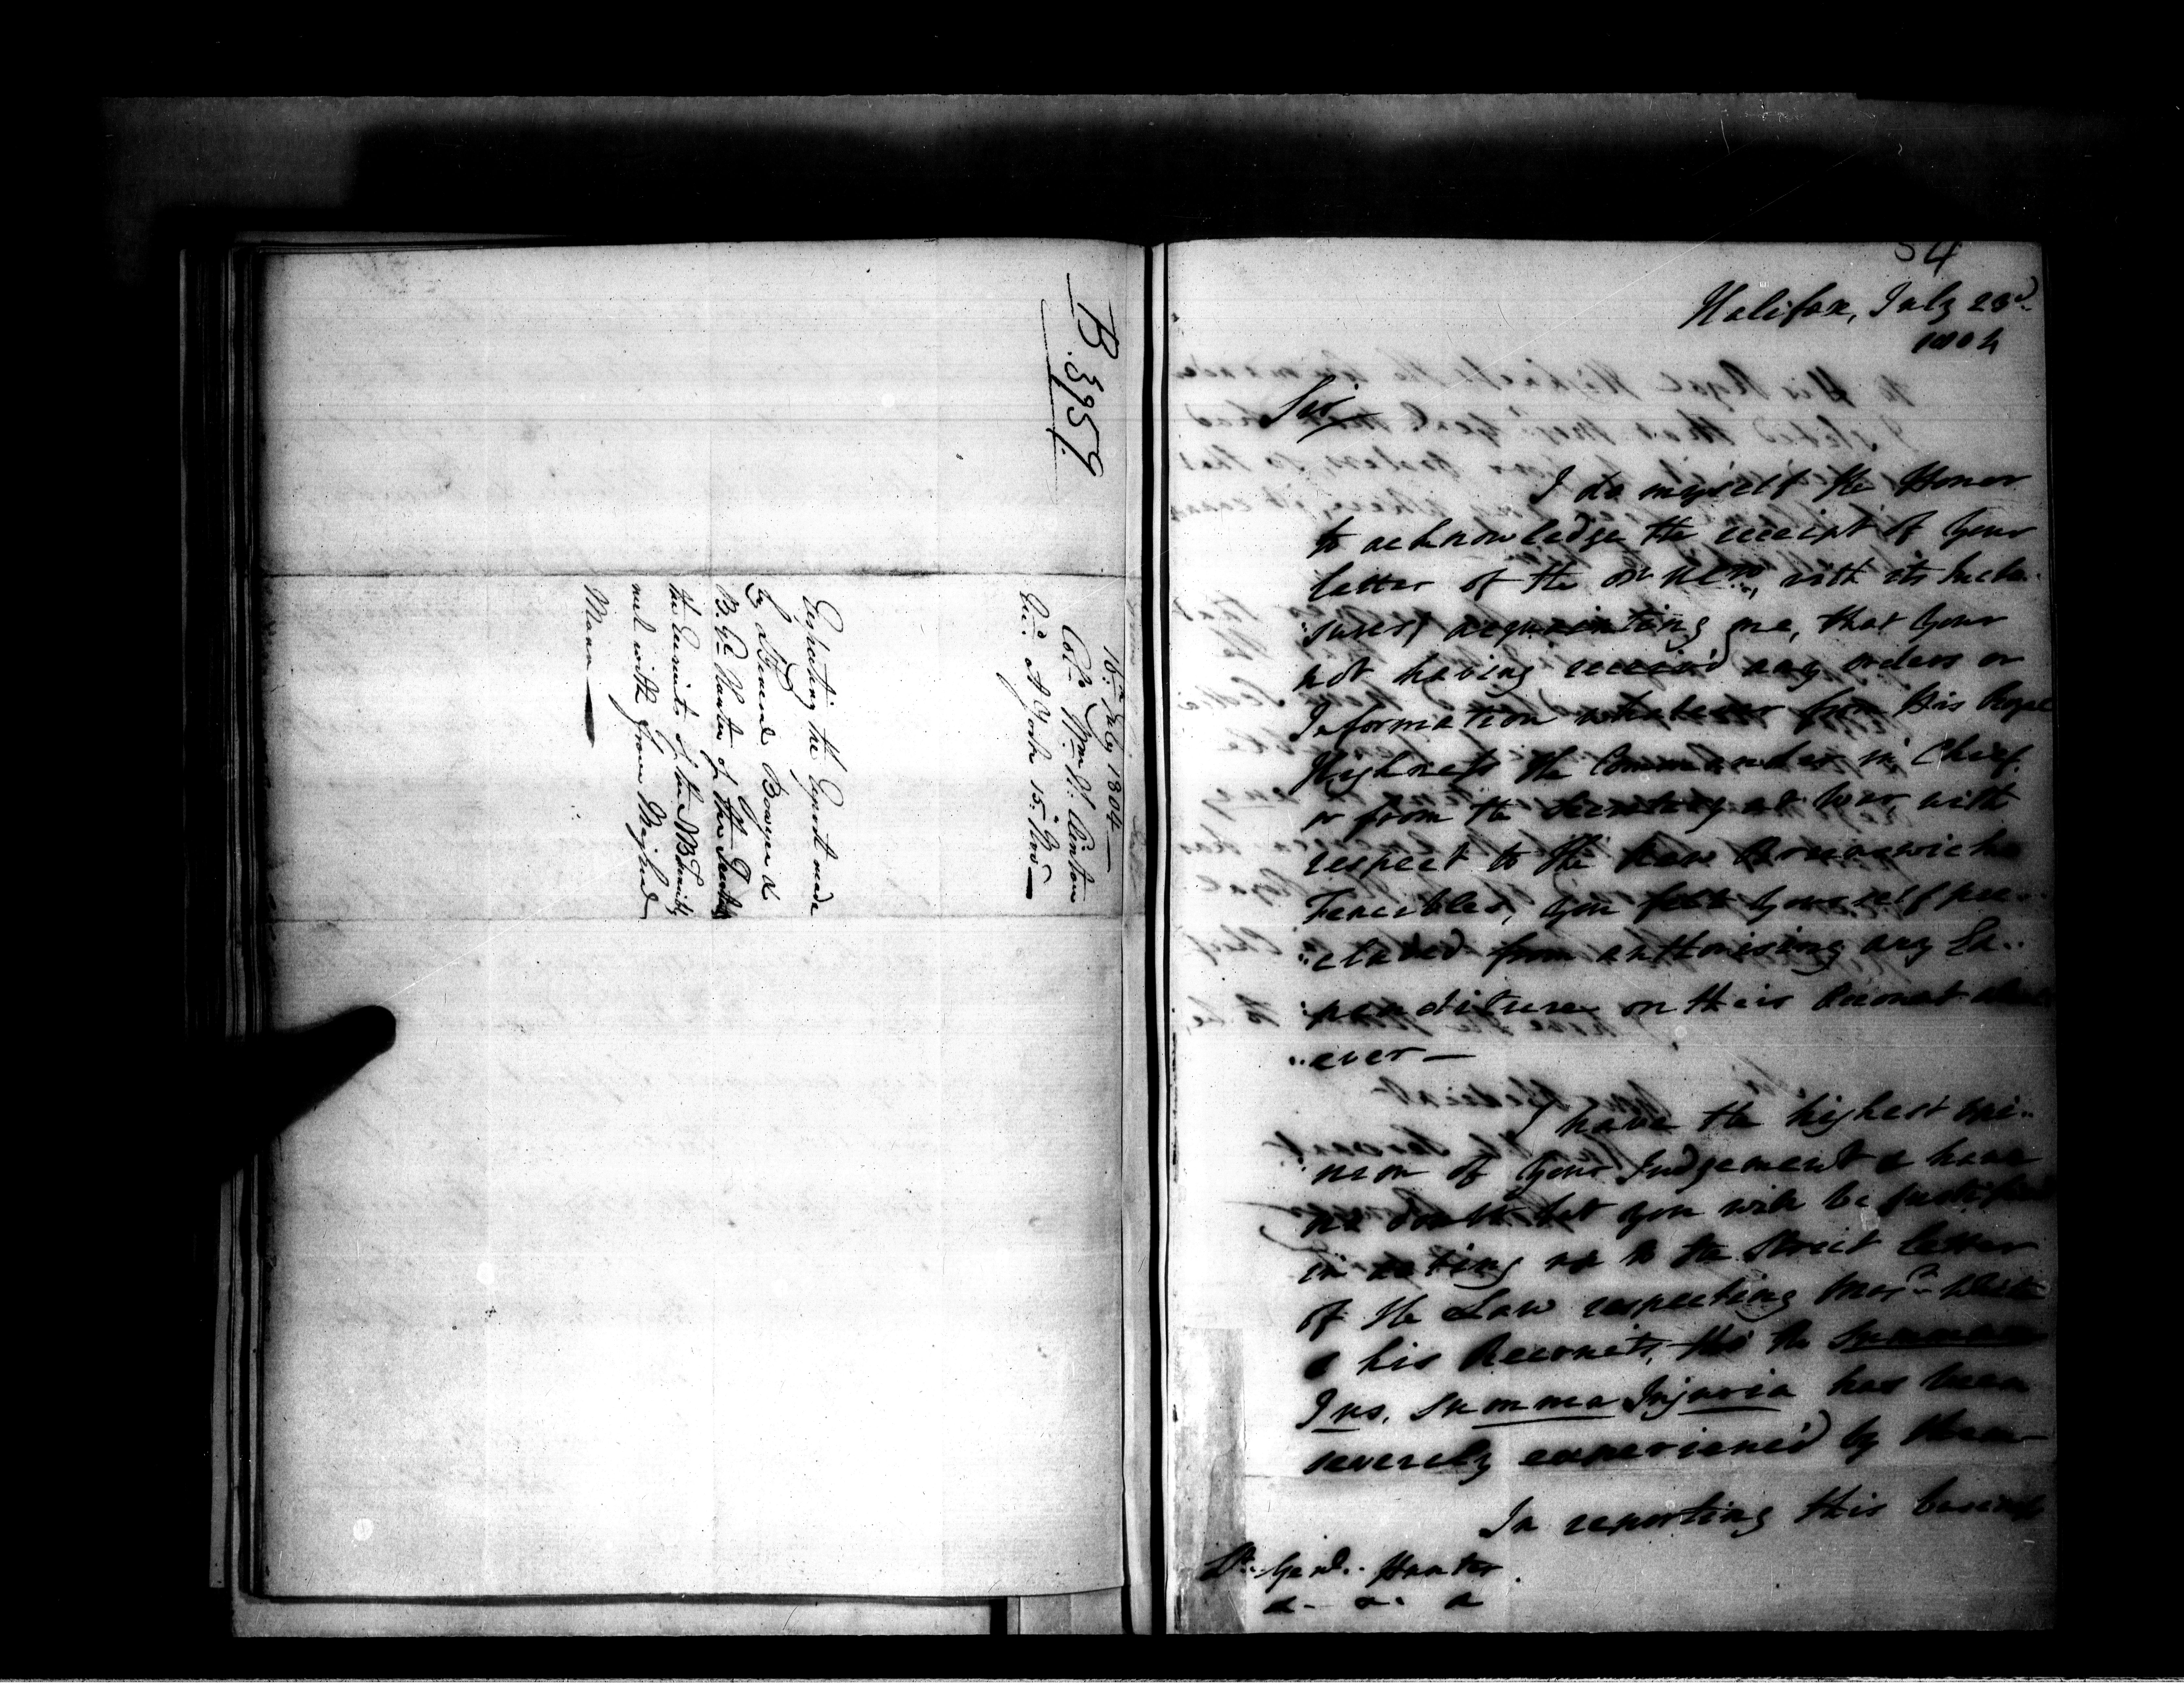 B. 3959
16th July 1804—
Col. Wm H. Clinton
at York 15th
Respecting the Report made
by Lt General Bowyer &
B. Gl Hunter of the
the Recruits of the NB
met with from Major
Mann—
54
Halifax, July 23d
1804
Sir
I do myself the Honor
to acknowledge the receipt of your
letter of the with its Inclo..
:sures, acquainting me, that your
not having receiv'd any orders or
Information whatever from His Royal
Highness the Commander in Chief
or from the Secretary at War with
respect to the New Brunswick
Fencibles, you felt yourself pre..
:cluded from authorising any Ex..
:penditure on their Account what
..ever—
I have the highest opi..
:nion of your Judgement & have
no doubt but you will be justified
in acting up to the strict letter
of the Law respecting
& his Recruits, tho' the Summum
Jus, summa Injuria has been
severely experienc'd by them—
In reporting this
Lt. Genl. Hunter
&. &. &